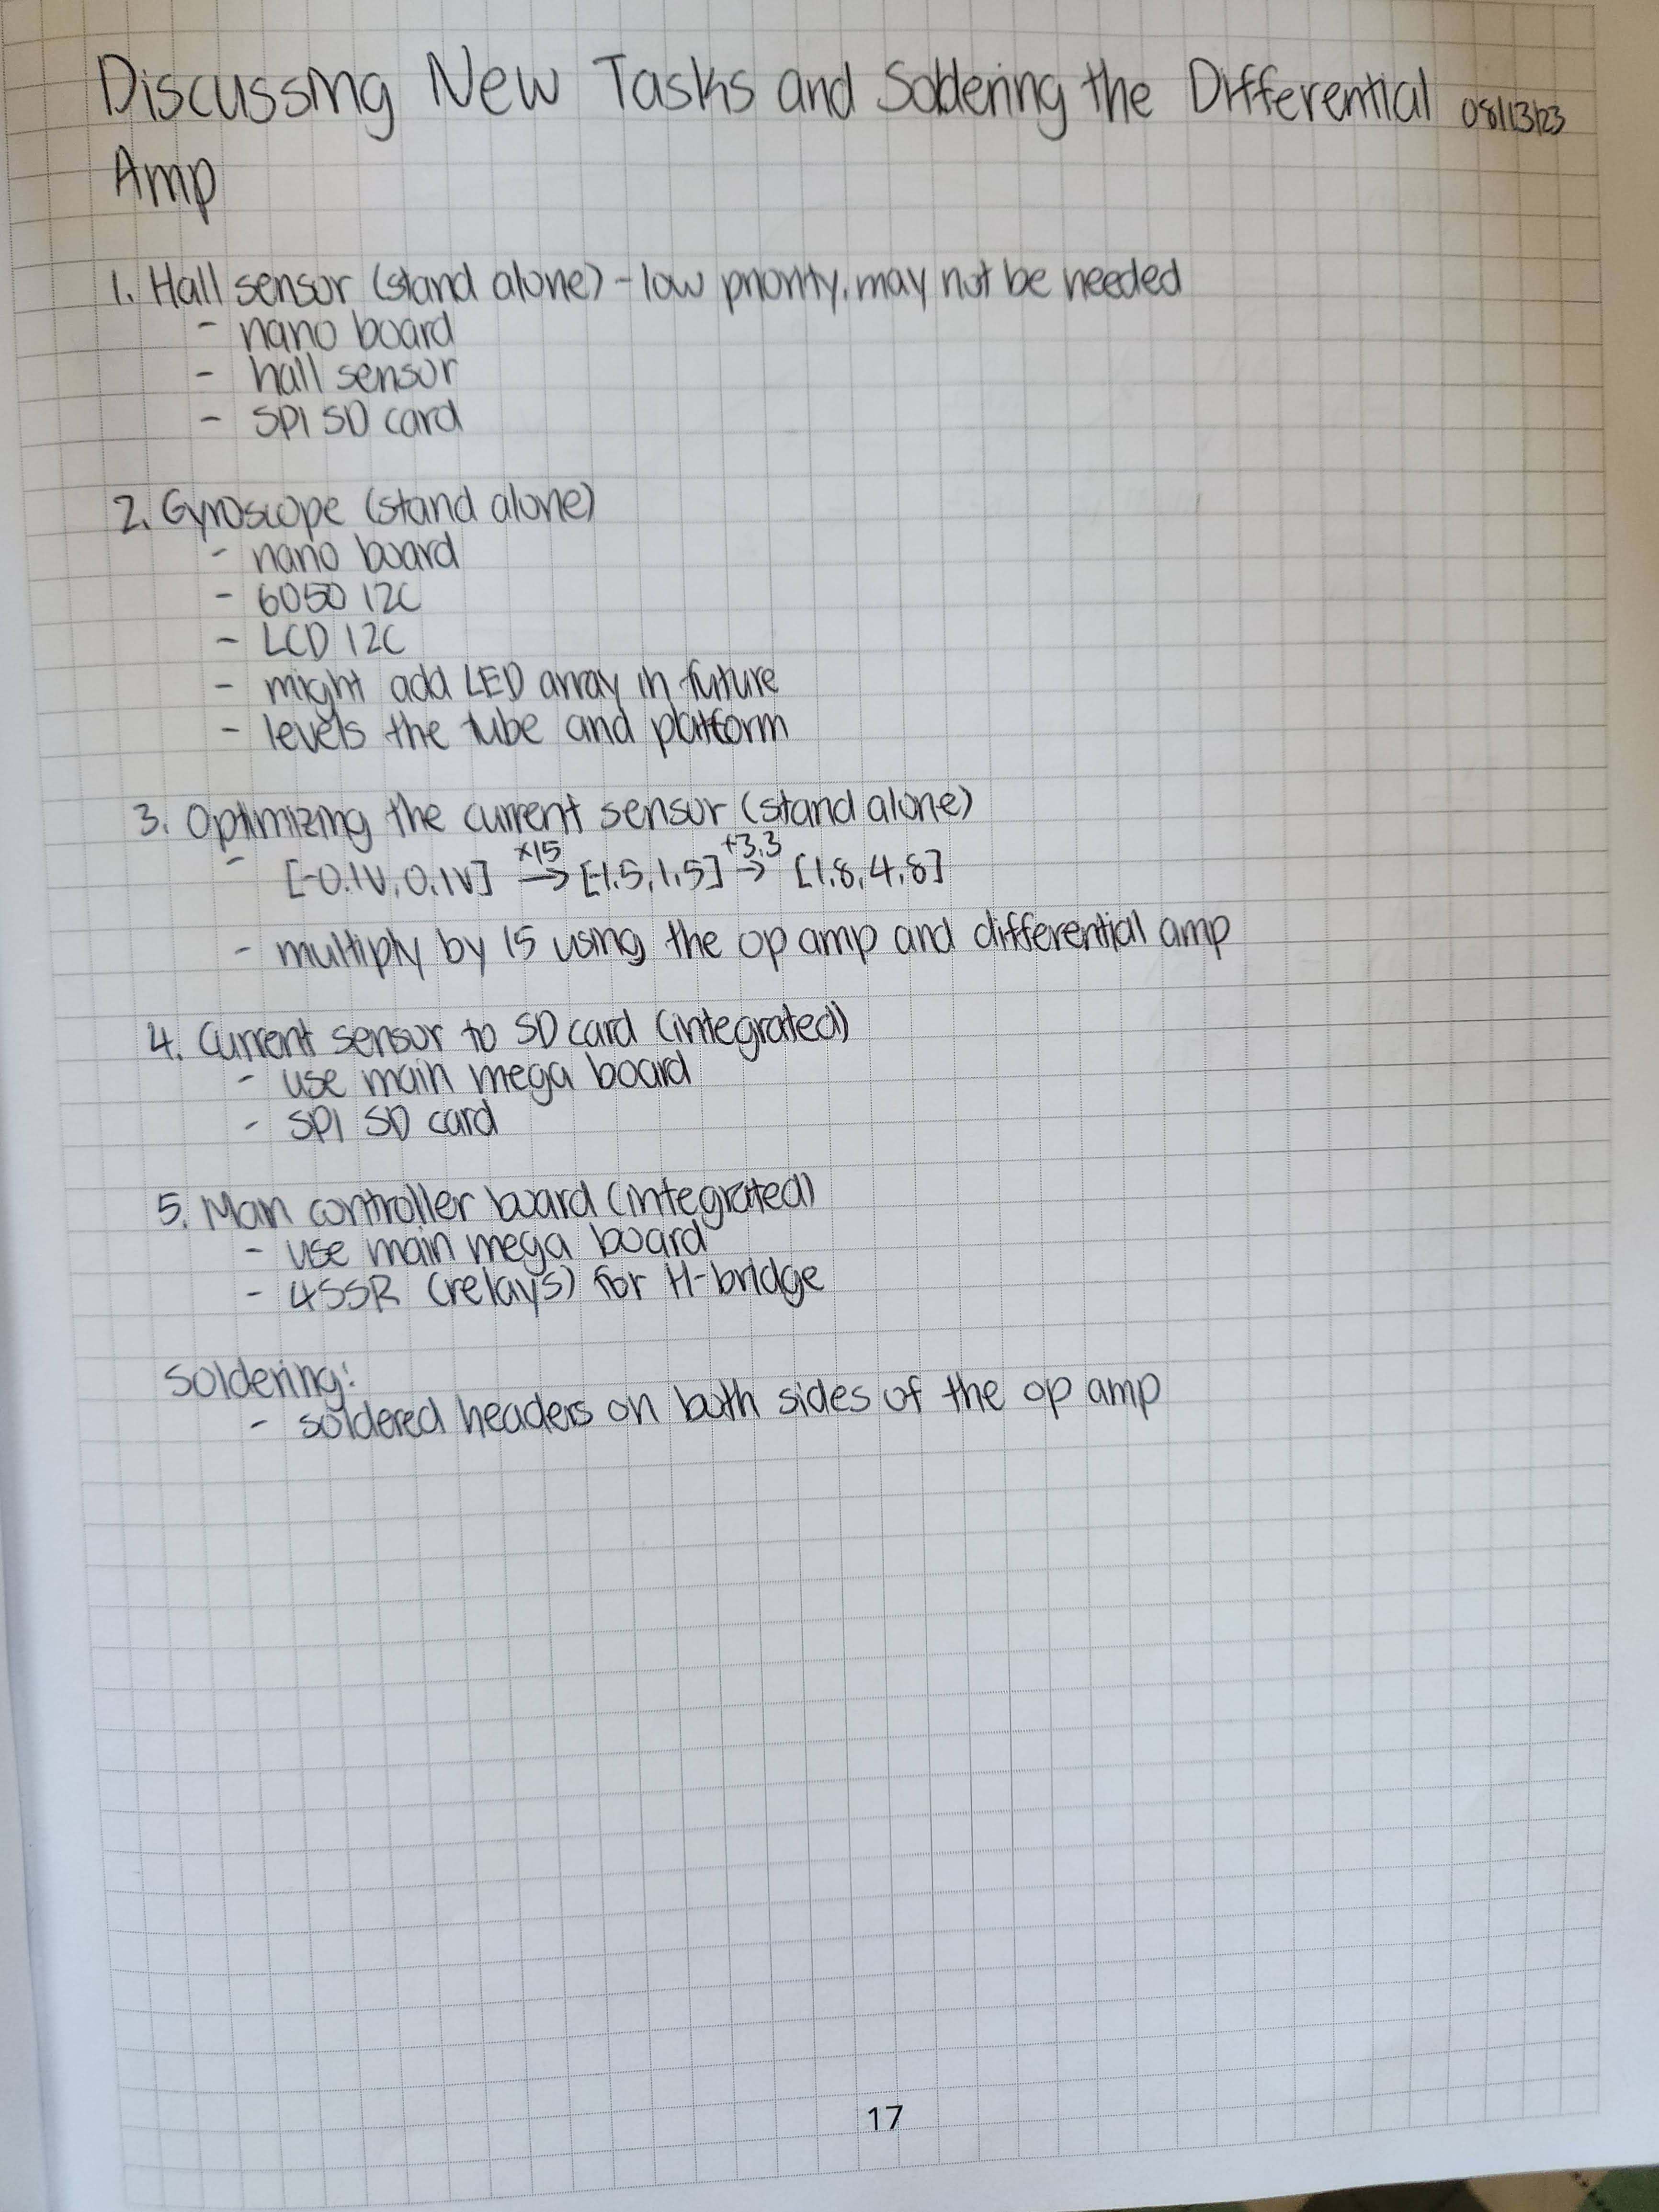 Discussing New Tasks and Soldering the Differential 08/13/23
Amp
1. Hall sensor (stand alone) - low priority, may not be needed
- nano board
- hall sensor
- SPI SD card
2. Gyroscope (stand alone)
- nano board
- 6050 I2C
- LCD I2C
- might add LED array in future
- levels the tube and platform
3. Optimizing the current sensor (stand alone)
- [-0.1V, 0.1V] x15 → [-1.5, 1.5] +3.3 → [1.8, 4.8]
- multiply by 15 using the op amp and differential amp
4. Current sensor to SD card (integrated)
- use main mega board
- SPI SD card
5. Main controller board (integrated)
- use main mega board
- 4SSR (relays) for H-bridge
Soldering:
- soldered headers on both sides of the op amp
17